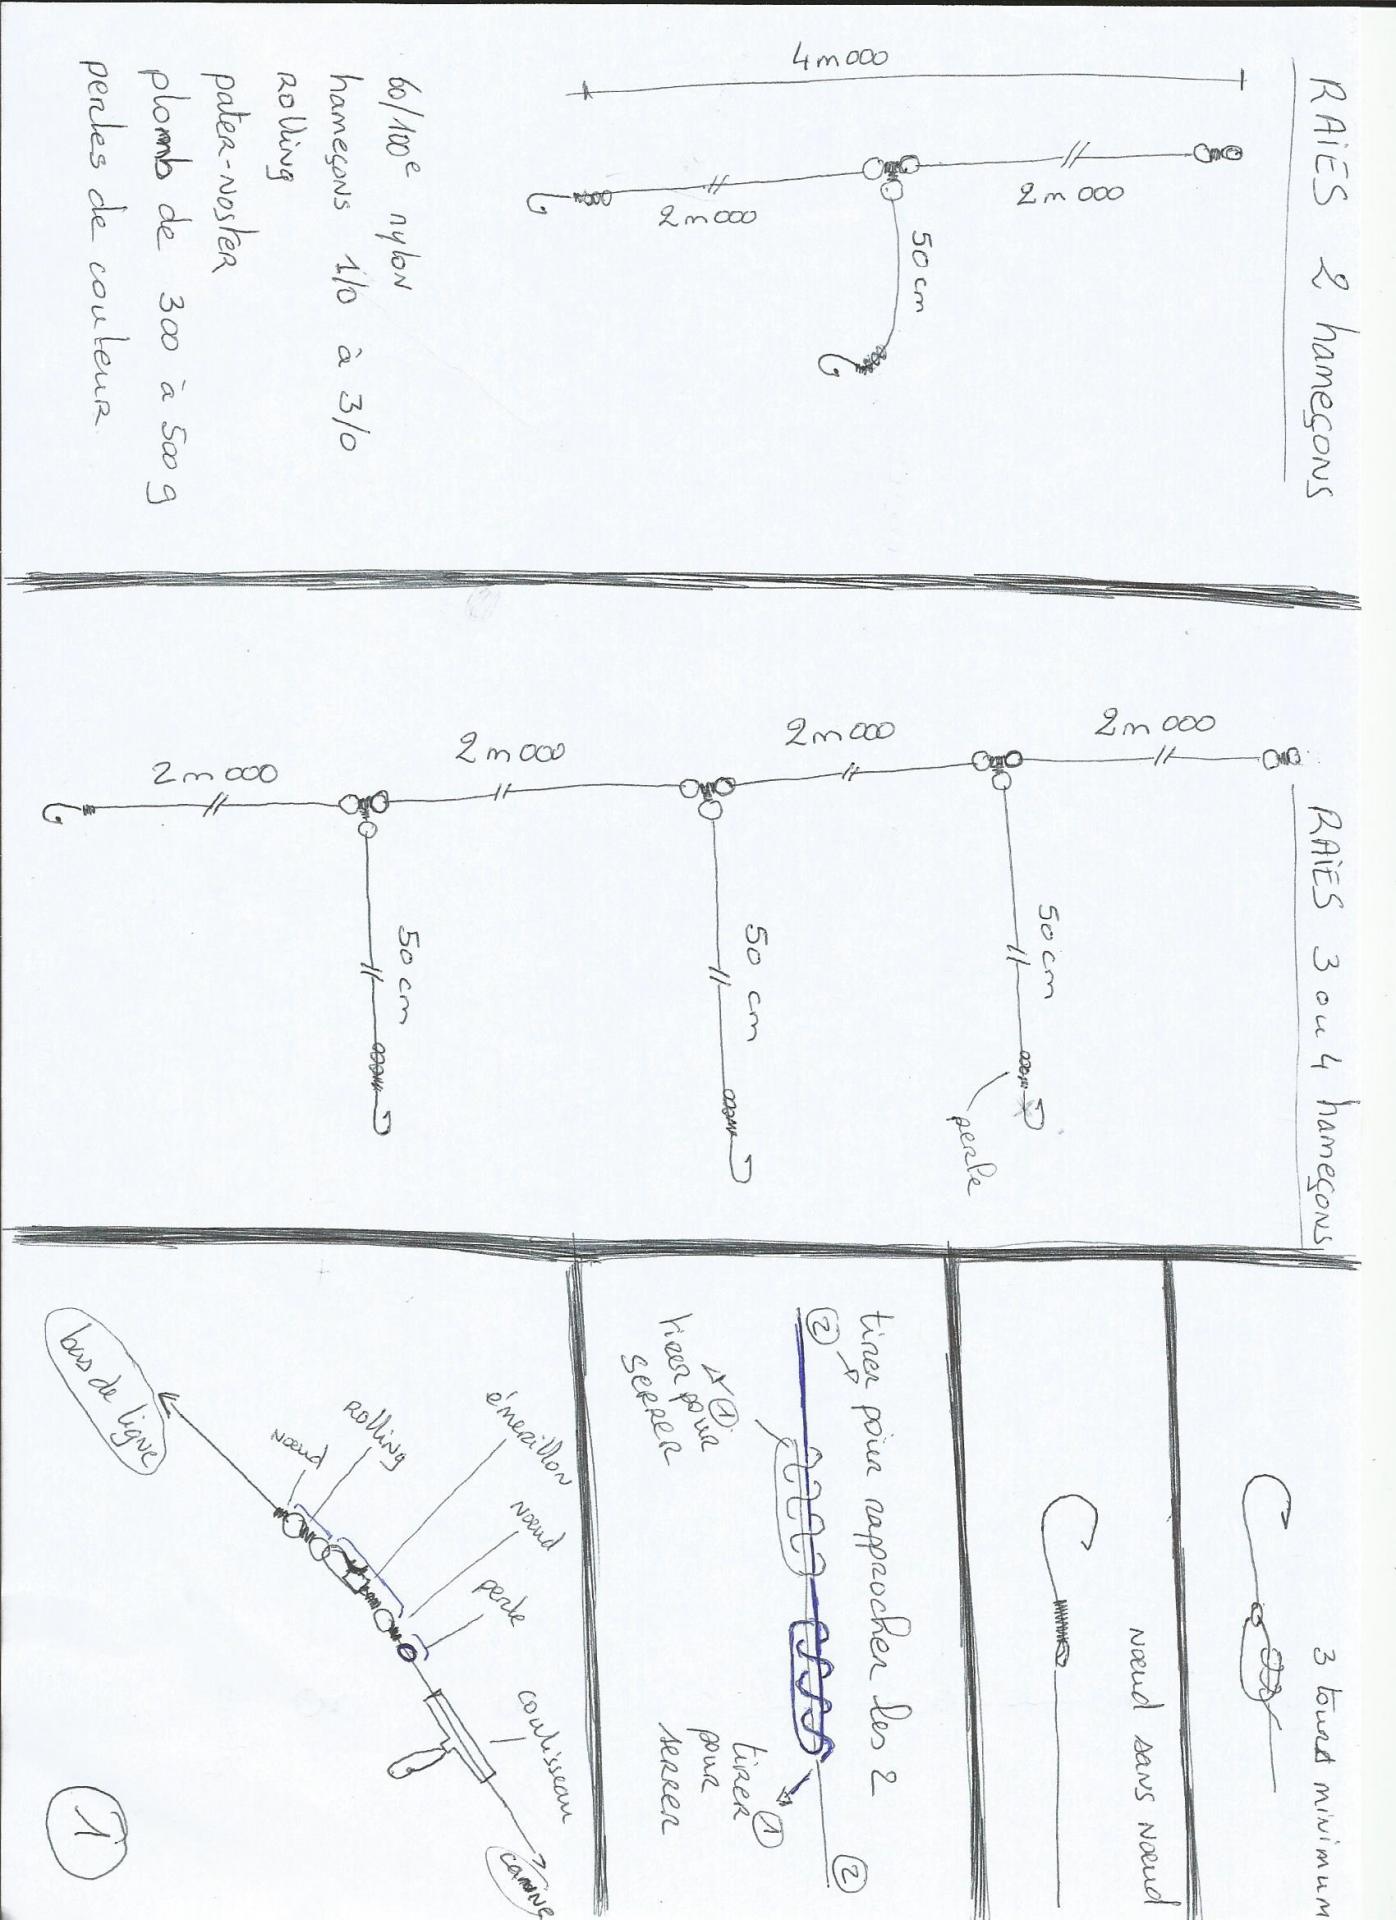 RAÏES 2 hameçons
4m000
2m000
2m000
50 cm
60/100e nylon
hameçons 1/0 à 3/0
Rolling
pater-noster
plomb de 300 à 500 g
perles de couleur
RAÏES 3 ou 4 hameçons
2m000
2m000
2m000
2m000
50 cm
50 cm
50 cm
perle
3 tours minimum
Nœud sans nœud
tirer pour rapprocher les 2
2
1
tirer pour
serrer
tirer 1
pour
serrer
2
émerillon
rolling
nœud
nœud
perle
coulisseau
bas de ligne
canne
1